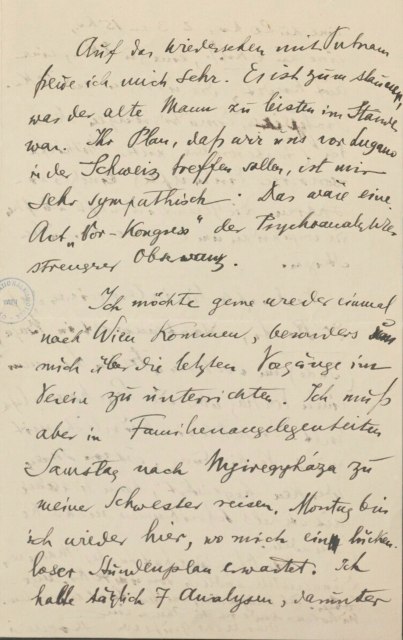 Auf das Wiedersehen mit Putnam
freue ich mich sehr. Es ist zum staunen,
was der alte Mann zu leisten im Stande
war. Ihr Plan, daß wir uns vor Lugano
in der Schweiz treffen sollen, ist mir
sehr sympathisch. Das wäre eine
Art „Vor-Kongress" der Psychoanalytiker
strengrer Observanz.
Ich möchte gerne wieder einmal
nach Wien kommen, besonders um
mich über die letzten Vorgänge im
Verein zu unterrichten. Ich muß
aber in Familienangelegenheiten
Samstag nach Nyiregyháza zu
meine Schwester reisen, Montag bin
ich wieder hier, wo mich ein lücken-
loser Stundenplan erwartet. Ich
halte täglich 7 Analysen, darunter